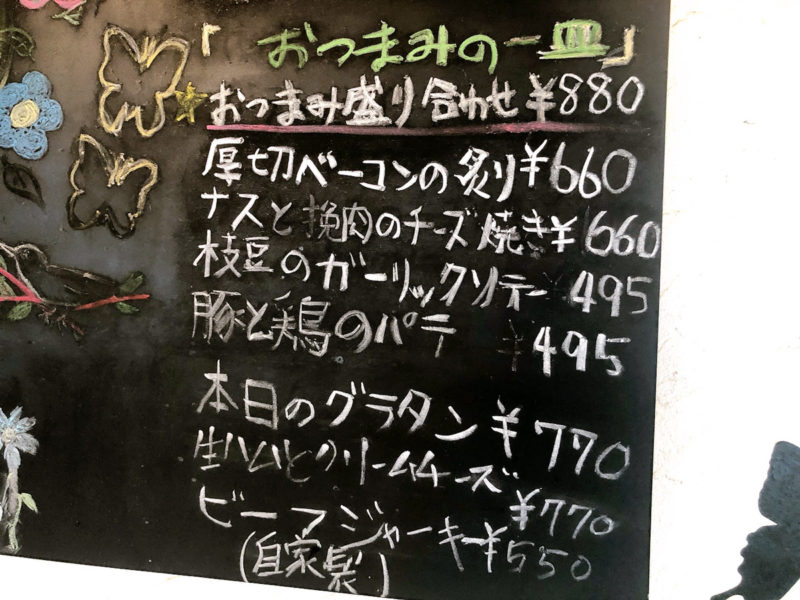 「おつまみの一皿」
おつまみ盛り合わせ ¥880
厚切ベーコンの炙り ¥660
ナスと挽肉のチーズ焼き ¥660
枝豆のガーリックソテー 495
豚と鶏のパテ ¥495
本日のグラタン ¥770
生ハムとクリームチーズ
¥770
ビーフジャーキー ¥550
(自家製)